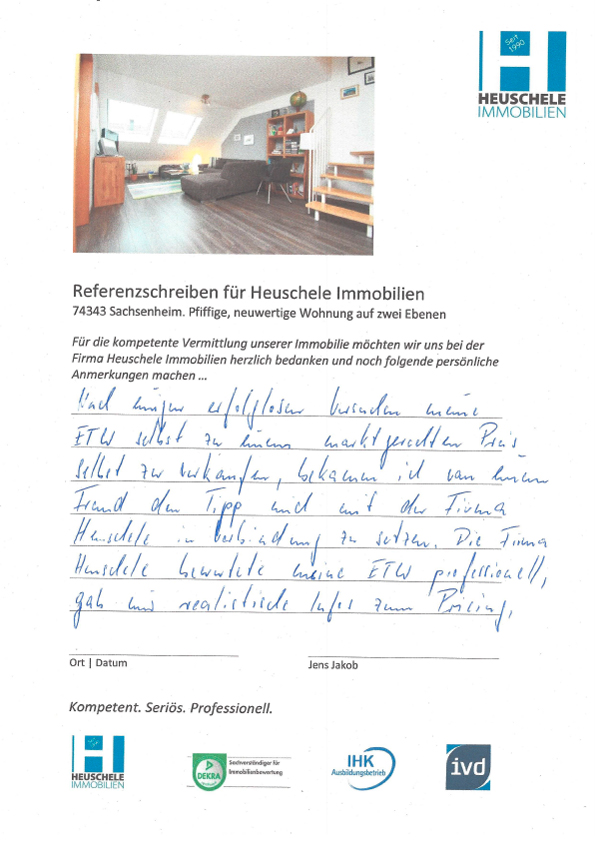 Seit 1990
HEUSCHELE
IMMOBILIEN
Referenzschreiben für Heuschele Immobilien
74343 Sachsenheim. Pfiffige, neuwertige Wohnung auf zwei Ebenen
Für die kompetente Vermittlung unserer Immobilie möchten wir uns bei der
Firma Heuschele Immobilien herzlich bedanken und noch folgende persönliche
Anmerkungen machen ...
Nach einigen erfolglosen Versuchen meine
ETW selbst zu einem marktgerechten Preis
selbst zu verkaufen, bekamen ich von einem
Freund den Tipp mich mit der Firma
Heuschele in Verbindung zu setzen. Die Firma
Heuschele bewertete meine ETW professionell,
gab mir realistische Infos zum Pricing,
Ort | Datum
Jens Jakob
Kompetent. Seriös. Professionell.
HEUSCHELE
IMMOBILIEN
DEKRA
Sachverständiger für
Immobilienbewertung
IHK
Ausbildungsbetrieb
ivd